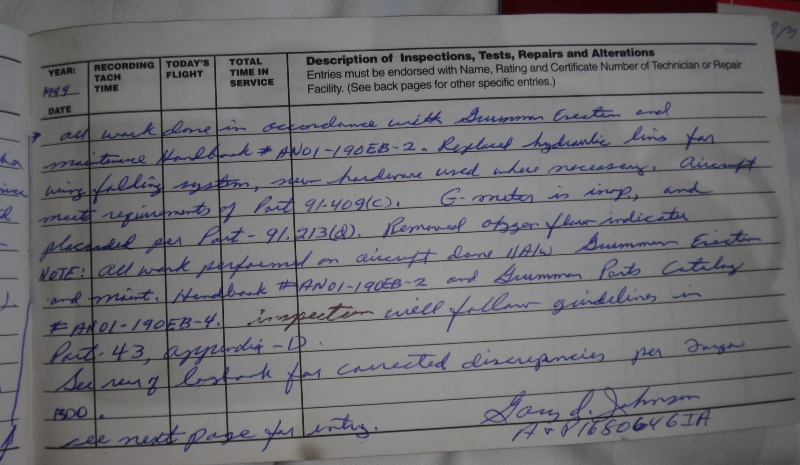 YEAR:
RECORDING TACH TIME
TODAY'S FLIGHT
TOTAL TIME IN SERVICE
Description of Inspections, Tests, Repairs and Alterations
Entries must be endorsed with Name, Rating and Certificate Number of Technician or Repair
Facility. (See back pages for other specific entries.)
1999
DATE
all work done in accordance with Grumman Erection and
maintenance Handbook # AN01-190EB-2. Replaced hydraulic line for
wing folding system, new hardware used where necessary. Aircraft
meets requirements of Part 91.409(c). G-meter is inop, and
placarded per Part-91.213(d). Removed oxygen flow indicator
NOTE: all work performed on aircraft done IAW Grumman Erection
and maint. Handbook # AN01-190EB-2 and Grumman Parts Catalog
# AN01-190EB-4. inspection will follow guidelines in
Part-43, appendix-D.
See rear of logbook for corrected discrepancies per
see next page for entry.
Gary D. Johnson
A&P 1680646IA